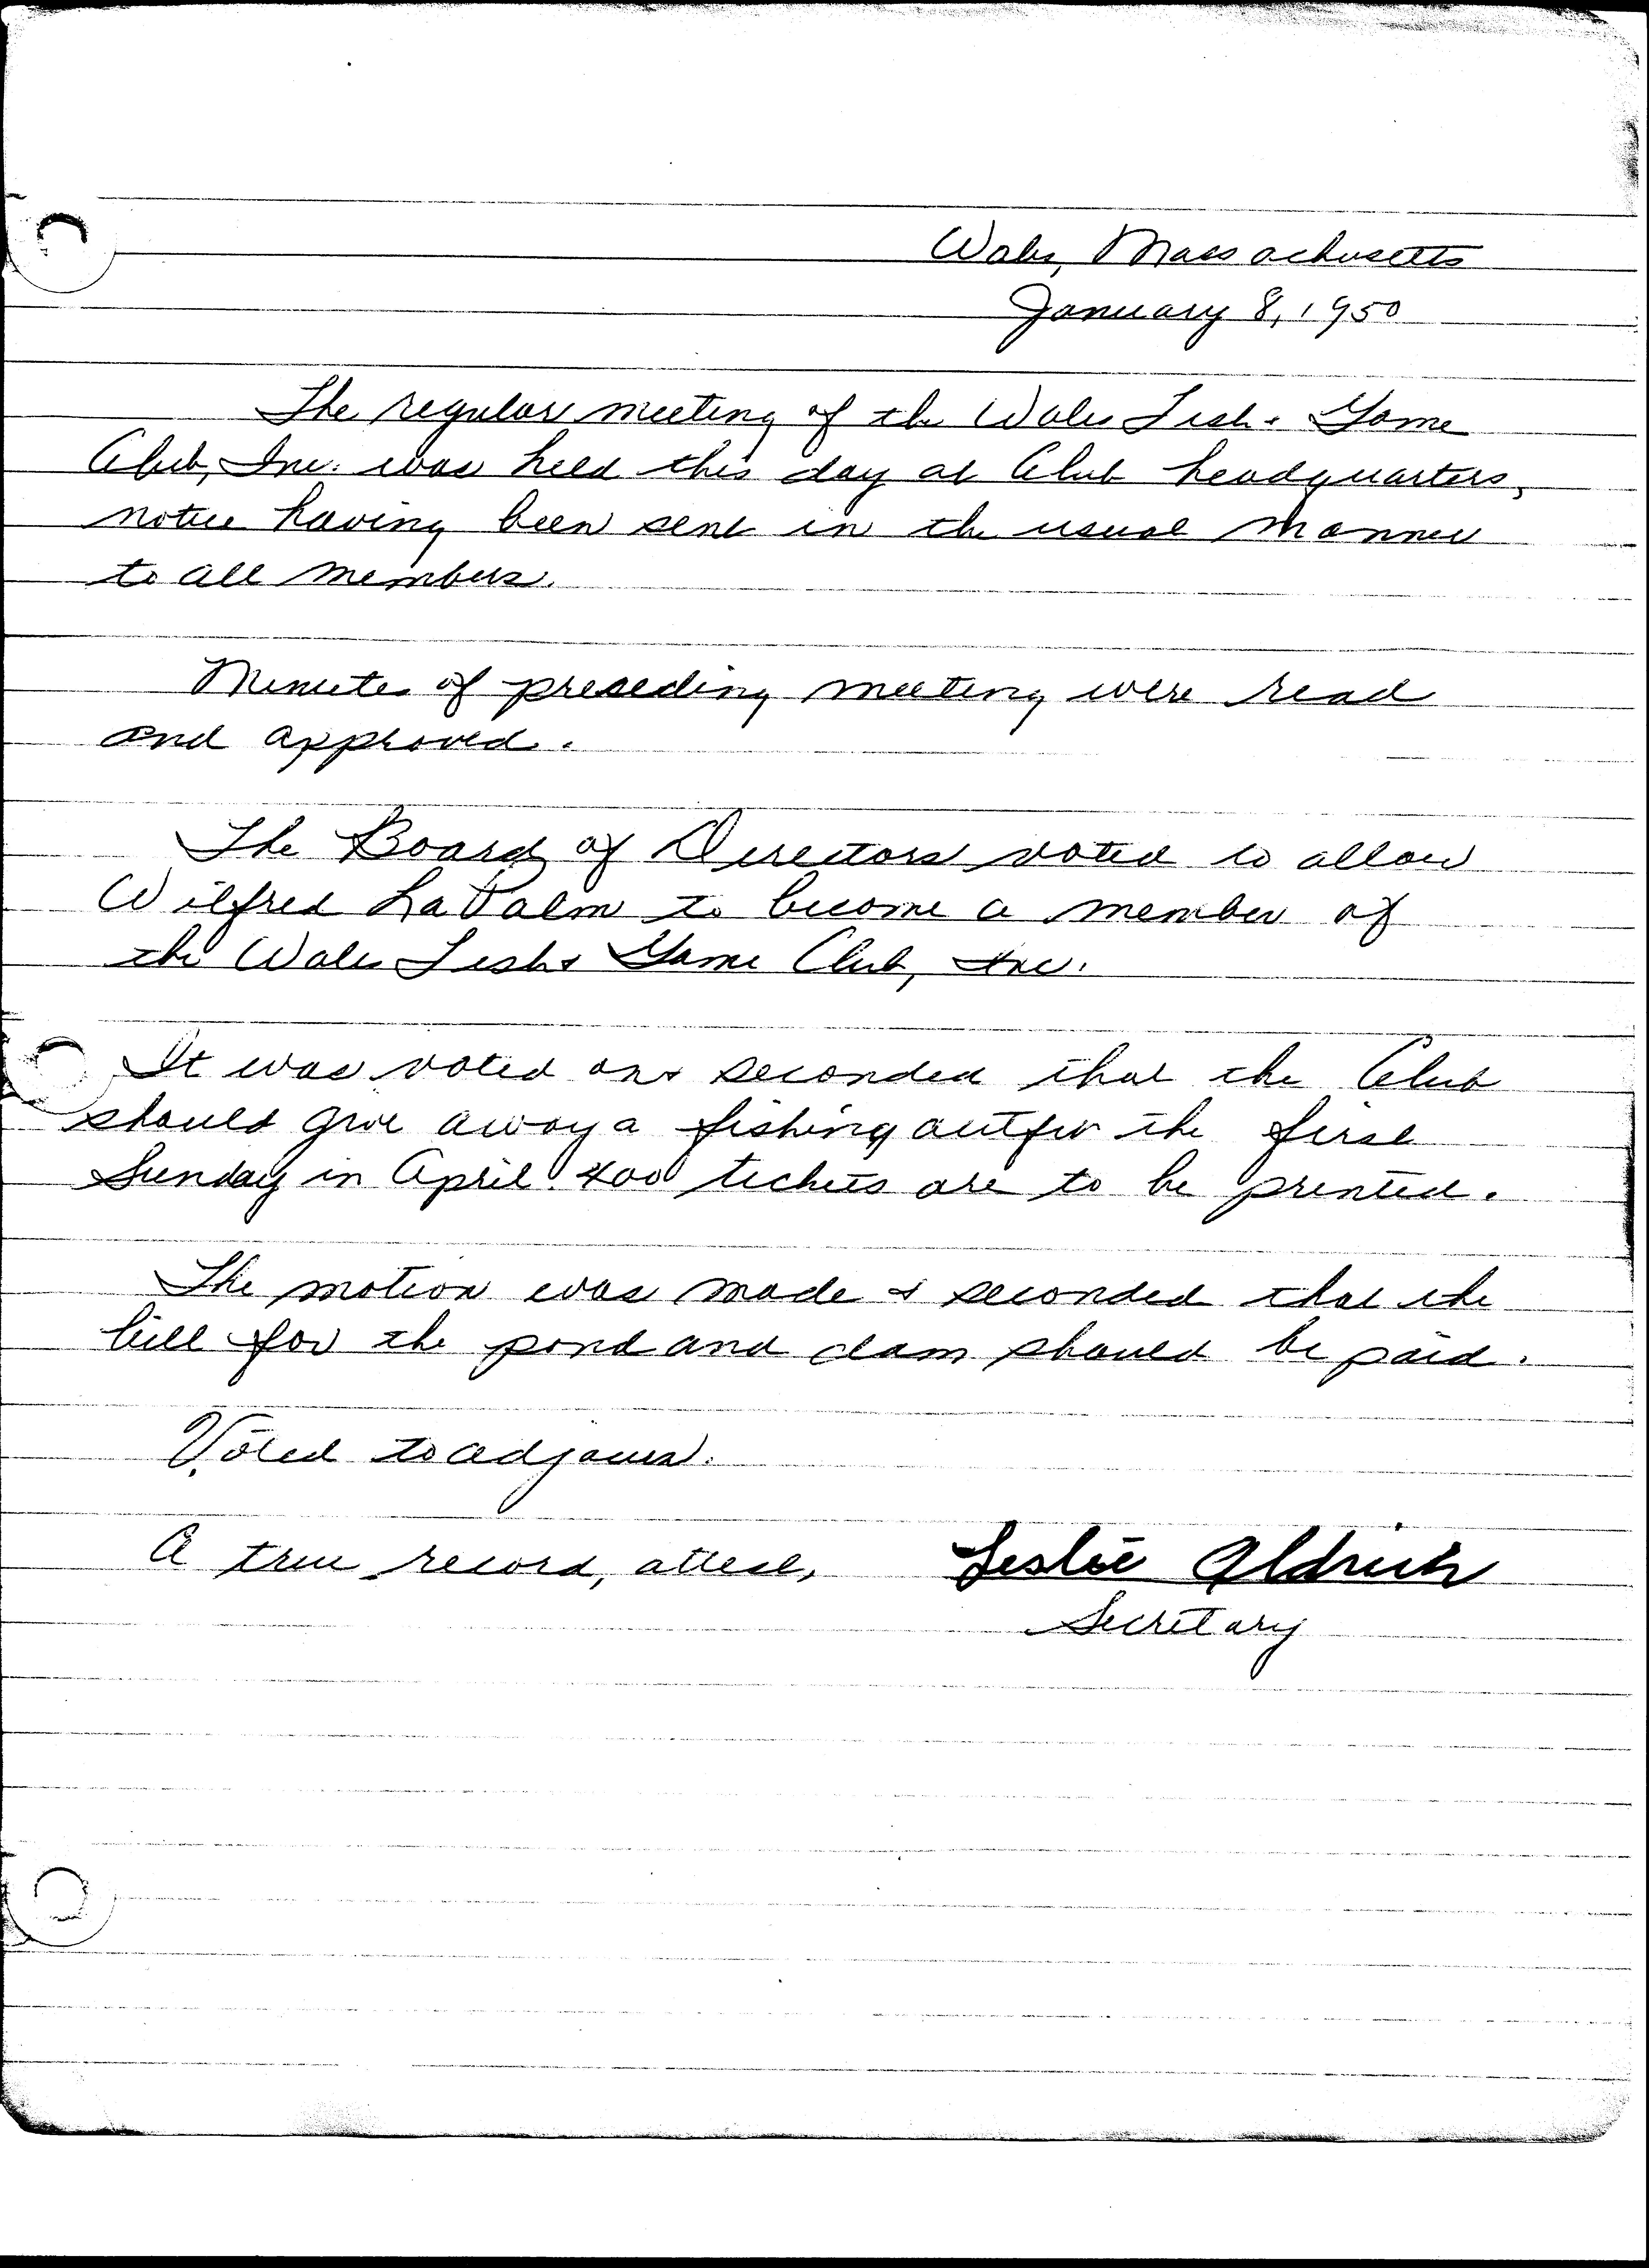 Wales, Massachusetts
January 8, 1950
The regular meeting of the Wales Fish & Game
Club, Inc. was held this day at Club headquarters,
notice having been sent in the usual manner
to all members.
Minutes of preceding meeting were read
and approved.
The Board of Directors voted to allow
Wilfred LaPalm to become a member of
the Wales Fish & Game Club, Inc.
It was voted and seconded that the Club
should give away a fishing outfit the first
Sunday in April. 400 tickets are to be printed.
The motion was made & seconded that the
bill for the pond and dam should be paid.
Voted to adjourn.
A true record, attest, Leslie Aldrich
Secretary